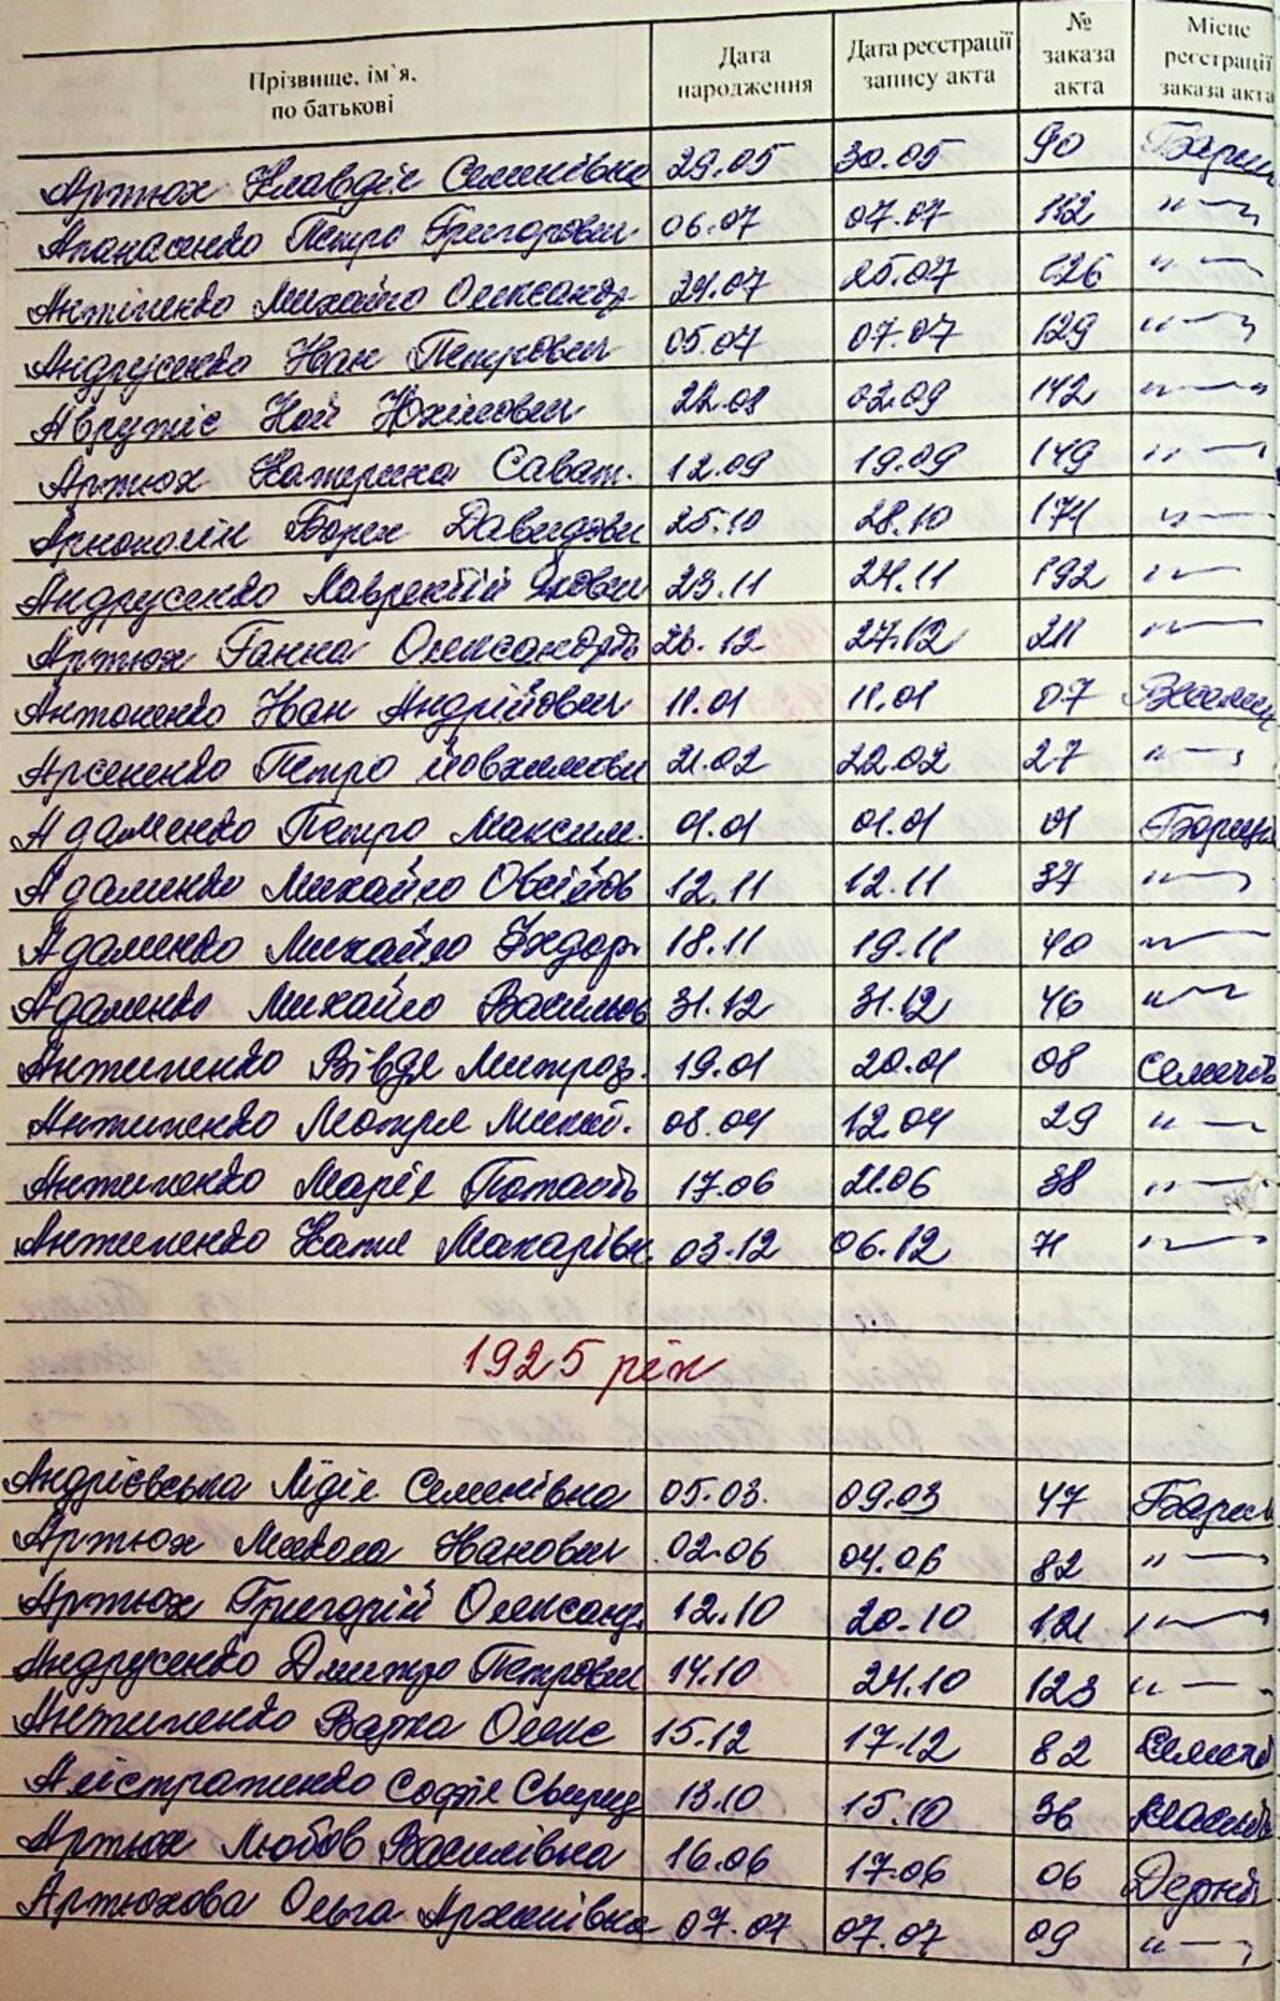 Прізвище, ім'я, по батькові Дата народження Дата реєстрації запису акта № заказа акта Місце реєстрації заказа акта
Артюх Клавдія Семенівна 29.05 30.05 90
Апанасенко Петро Григорович 06.07 07.07 112 "—
Антіпенко Михайло Олександр 24.07 25.07 126 "—
Андрусенко Іван Петрович 05.07 07.07 129 "—
Аврутіс Ной Юхімович 22.08 02.09 142 "—
Артюх Катерина Сават. 12.09 19.09 149 "—
Борех Давидович 25.10 28.10 174 "—
Андрусенко Лаврентій Якович 23.11 24.11 192 "—
Артюх Ганна Олександрів 26.12 27.12 211 "—
Антоненко Іван Андрійович 11.01 11.01 07
Арсененко Петро Йовхимови 21.02 22.02 27 "—
Адаменко Петро Максим. 01.01 01.01 01
Адаменко Михайло Овсійов 12.11 12.11 37 "—
Адаменко Михайло Федор. 18.11 19.11 40 "—
Адаменко Михайло Васильов 31.12 31.12 46 "—
Антипенко Вівдя Митроф. 19.01 20.01 08
Антипенко Мотря Микит. 08.04 12.04 29 "—
Антипенко Марія Потапів 17.06 21.06 38 "—
Антипенко Катя Макарівн. 03.12 06.12 71 "—
1925 рік
Андрієвська Лідія Семенівна 05.03. 09.03 47
Артюх Микола Іванович 02.06 04.06 82 "—
Артюх Григорій Олександ. 12.10 20.10 121 "—
Андрусенко Дмитро Петрович 14.10 24.10 123 "—
Антипенко Варка Олекс 15.12 17.12 82
Алістратенко Софія Свирид 13.10 15.10 36
Артюх Любов Василівна 16.06 17.06 06
Артюхова Ольга Архипівна 07.07 07.07 09 "—